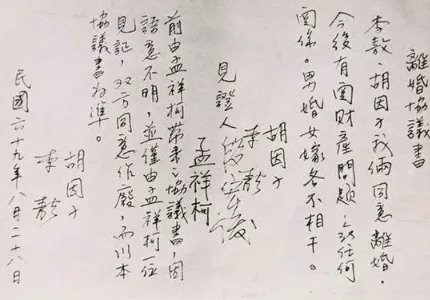 離婚協議書
李敖、胡因子我倆同意離婚，
今後有関財產問題，任何
関係。男婚女嫁各不相干。
胡因子
李敖
見證人
孟祥柯
前由孟祥柯帶來之協議書，因
語意不明，並僅由孟祥柯一位
見証，双方同意作廢，而以本
協議書為準。
胡因子
李敖
民國六十九年八月二十八日